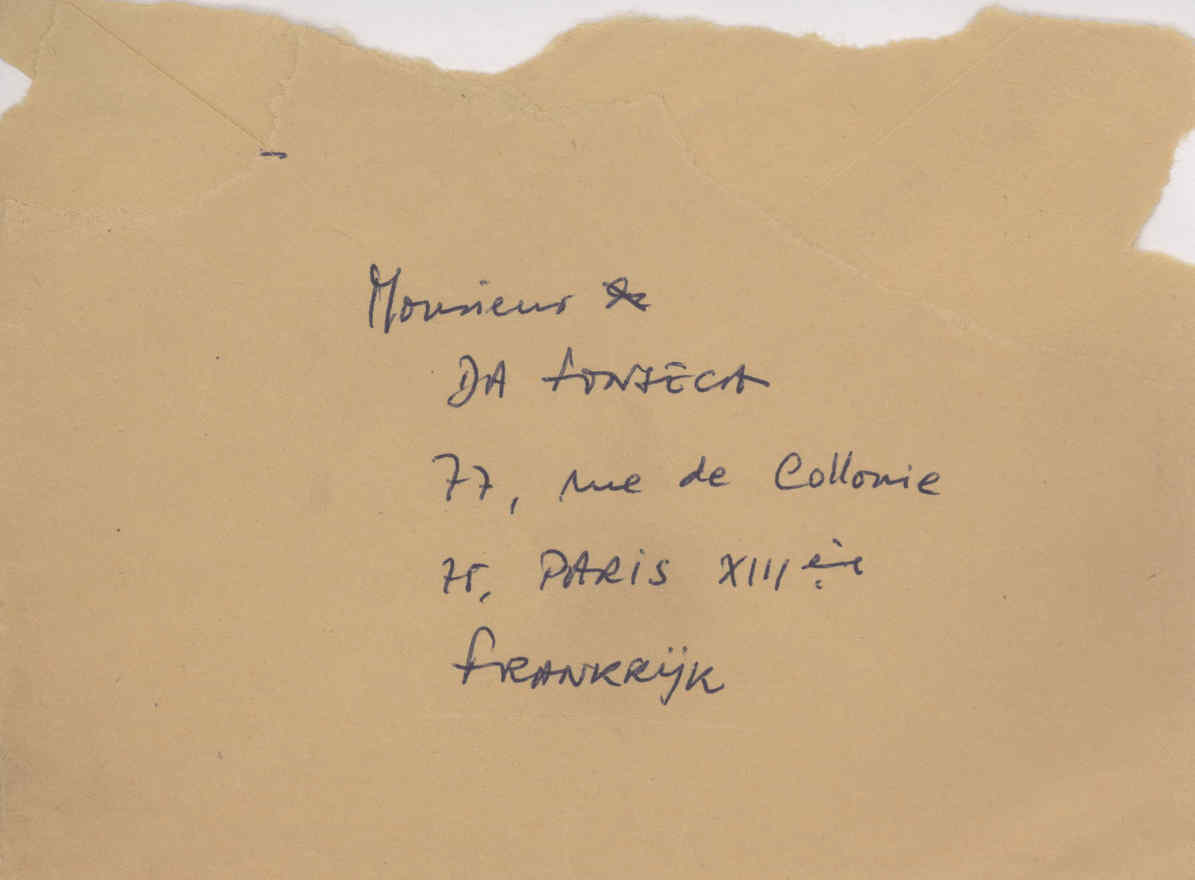 Monsieur
DA FONSECA
77, rue de Collonie
75, PARIS XIII ème
FRANKRIJK